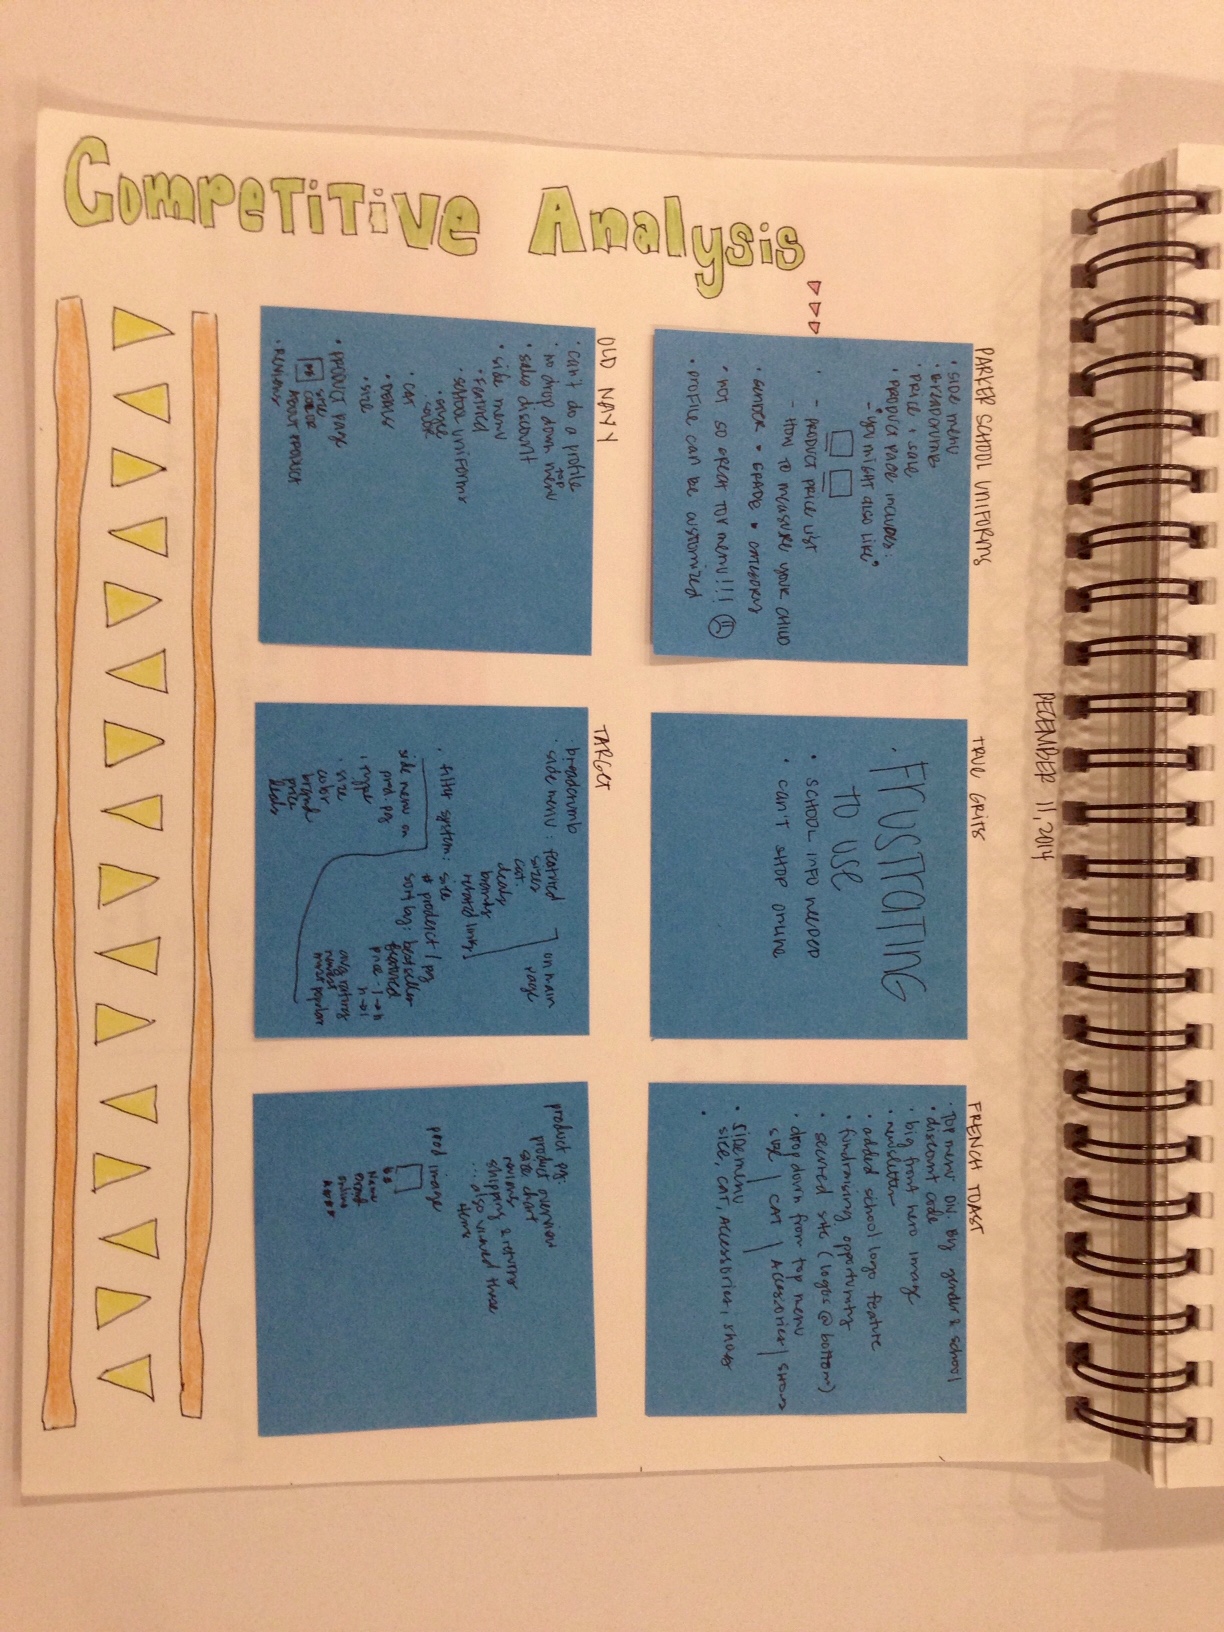 Competitive Analysis
DECEMBER 11, 2014
PARKER SCHOOL UNIFORMS
• SIDE MENU
• BREADCRUMBS
• PRICE + sale
• PRODUCT PAGE includes:
- "you might also like"
- PRODUCT PRICE LIST
- HOW TO MEASURE YOUR CHILD
• GENDER • GRADE • UNIFORMS
• NOT SO GREAT TOP MENU!!!
• PROFILE can be customized
TRUE GRITS
• FRUSTRATING
TO USE
• SCHOOL INFO needed
• can't SHOP online
FRENCH TOAST
• Top menu DIV. by gender & school
• discount code
• big front hero image
• newsletter
• added school logo feature
• fundraising opportunity
• secured site (logos @ bottom)
• drop down from top menu
size | CAT | Accessories | shoes
• Sidemenu
size, CAT, Accessories, shoes
OLD NAVY
• can't do a profile
• no drop down top menu
• sales discount
• side menu
• Featured
• SCHOOL UNIFORM
• CAT
• DEALS
• size
• PRODUCT page
size
color
ABOUT PRODUCT
• REVIEWS
TARGET
• breadcrumb
• side menu: featured
sizes
cat
deals
brands
related links
on main
page
• filter system: size
# product / pg
sort by: bestseller
featured
price l → H
H → l
avg ratings
newest
most popular
side menu on
prod pg
• type
• size
color
brand
price
deals
product pg:
product overview
size chart
reviews
shipping & returns
... also viewed these
items
prod image